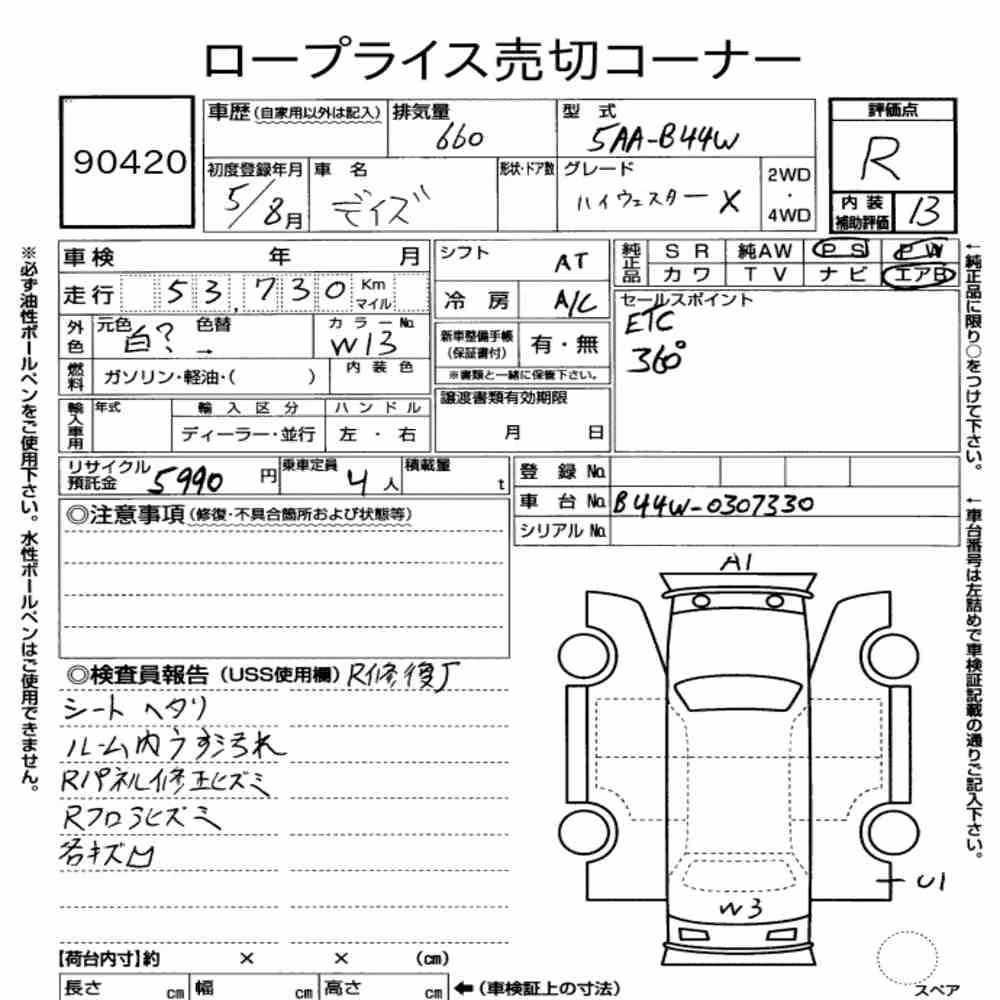 ロープライス売切コーナー
90420
車歴(自家用以外は記入) 排気量 型式 評価点
660 5AA-B44W R
初度登録年月 車名 形状・ドア数 グレード 2WD・4WD
5/8月 デイズ ハイウェスター X
内装補助評価 B
車検 年 月 シフト AT 純正品 SR 純AW PS PW
走行 53,730 Km マイル 冷房 A/C カワ TV ナビ エアB
外色 元色 白? 色替 → カラーNo. W13
新車整備手帳(保証書付) 有・無
※書類と一緒に保管下さい。
セールスポイント
ETC
360°
燃料 ガソリン・軽油・( ) 内装色
譲渡書類有効期限
月 日
輸入車用 年式 輸入区分 ハンドル
ディーラー・並行 左・右
リサイクル預託金 5990円 乗車定員 4人 積載量 t
登録No.
車台No. B44W-0307330
シリアルNo.
◎注意事項(修復・不具合箇所および状態等)
◎検査員報告(USS使用欄) R修復了
シートヘタリ
ルーム内うす汚れ
Rパネル修正ヒズミ
Rフロアヒズミ
各キズ凹
A1
U1
W3
【荷台内寸】約 × × (cm)
長さ cm 幅 cm 高さ cm ←(車検証上の寸法)
スペア
※必ず油性ボールペンをご使用下さい。水性ボールペンはご使用できません。
←純正品に限り○をつけて下さい。
←車台番号は左詰めで車検証記載の通りご記入下さい。